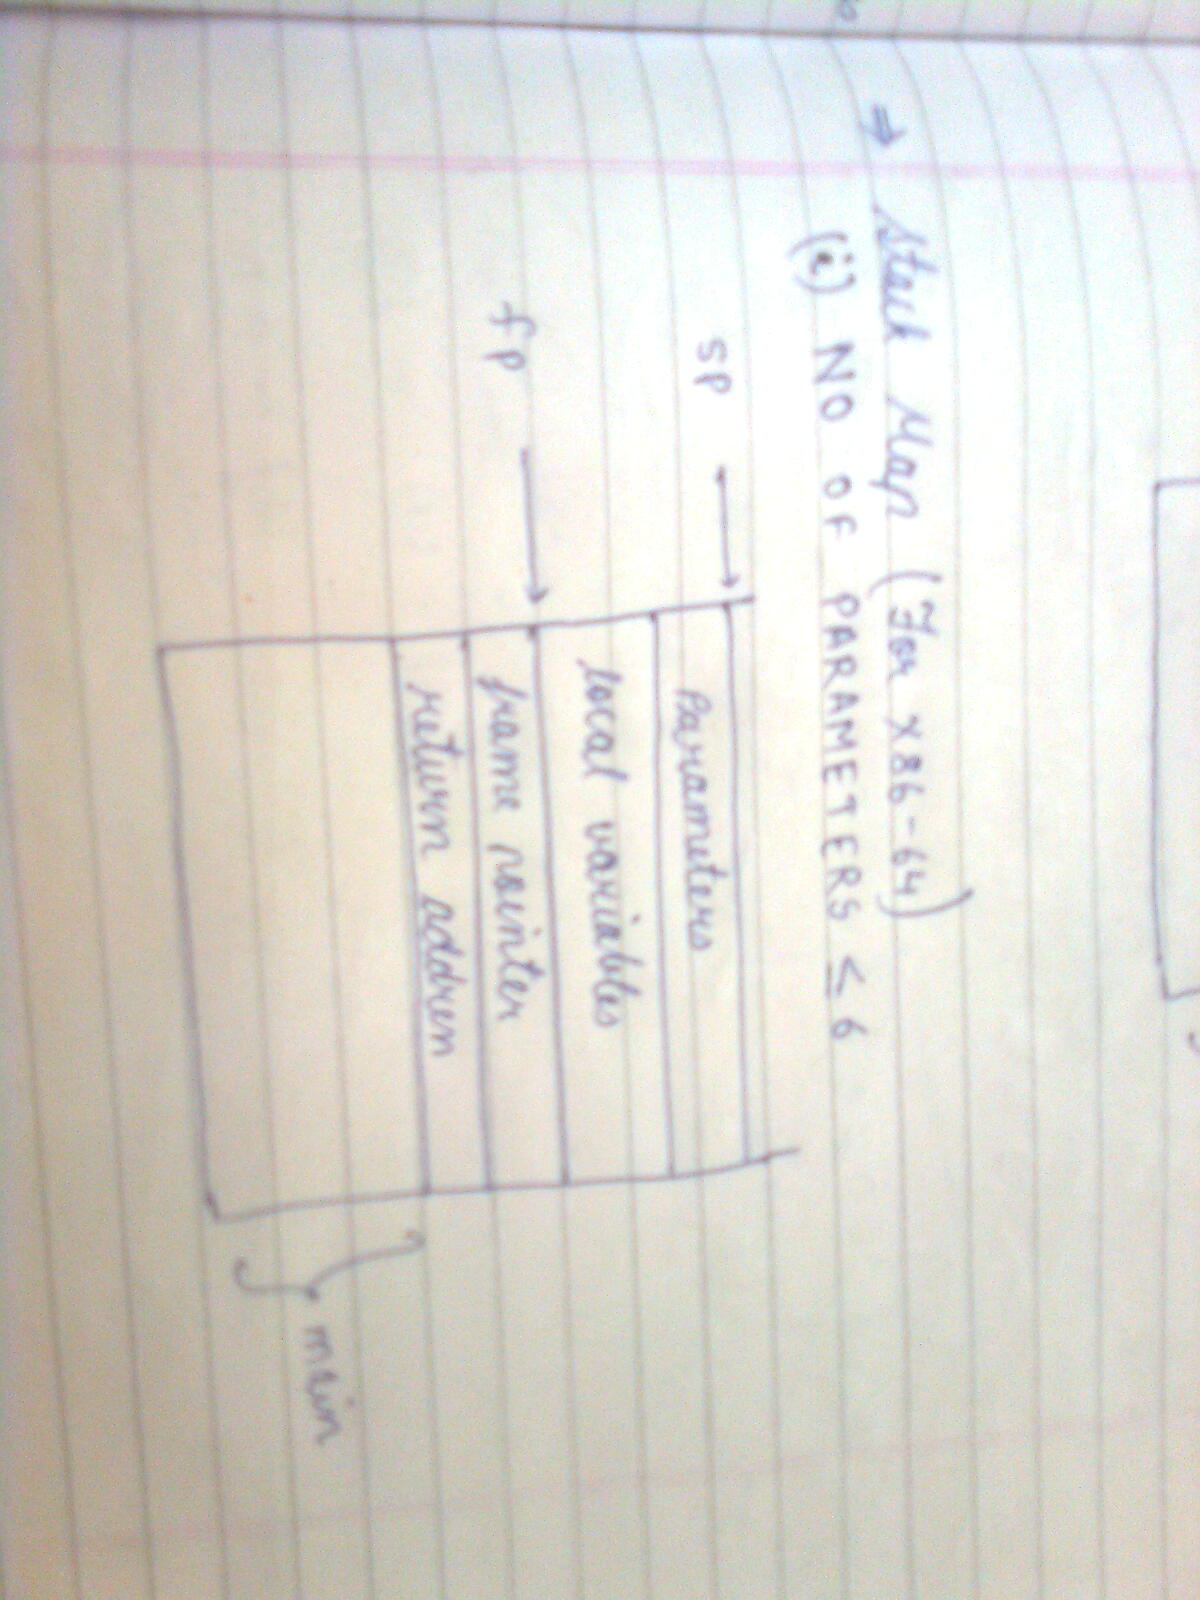 ⇒ Stack Map (For X86-64)
(i) NO OF PARAMETERS ≤ 6
sp → Parameters
local variables
fp → frame pointer
return address
main